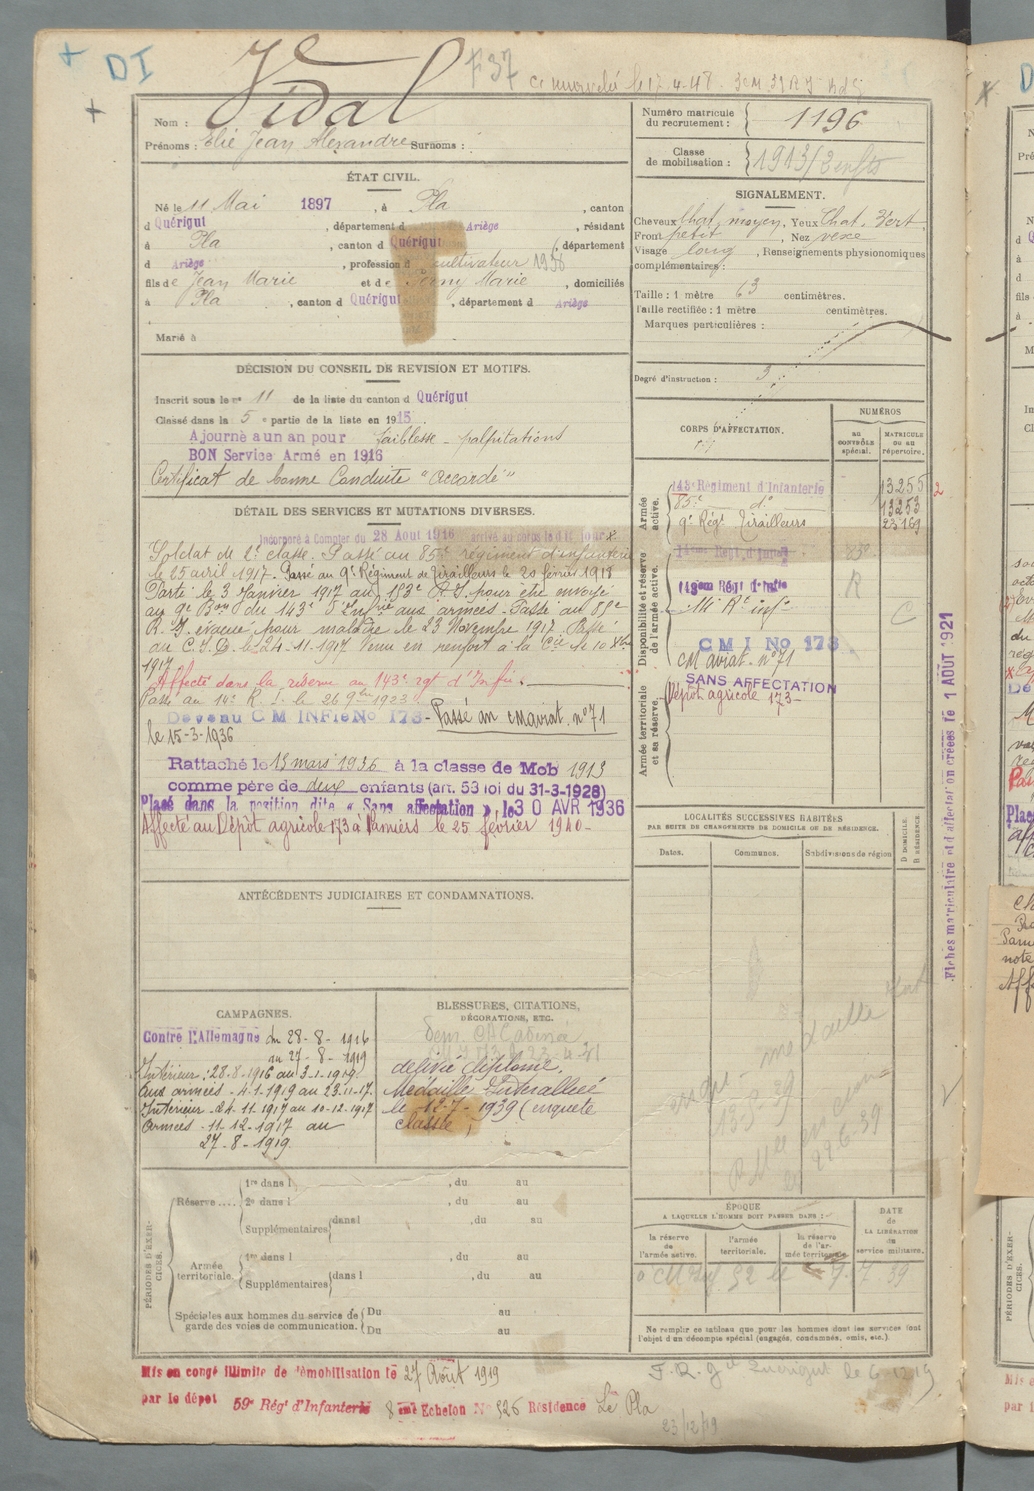 DI
Vidal
F37
Nom :
Prénoms : Elie Jean Alexandre Surnoms :
Numéro matricule du recrutement : 1196
Classe de mobilisation : 1913/2 enfts
ÉTAT CIVIL.
Né le 11 Mai 1897, à Pla, canton
d Quérigut, département d Ariège, résidant
à Pla, canton d Quérigut, département
d Ariège, profession d cultivateur 1938
fils de Jean Marie et de Marie, domiciliés
à Pla, canton d Quérigut, département d Ariège
Marié à
SIGNALEMENT.
Cheveux chat. moyen, Yeux Chat. Vert
Front petit, Nez vexe
Visage long, Renseignements physionomiques
complémentaires :
Taille : 1 mètre 63 centimètres.
Taille rectifiée : 1 mètre centimètres.
Marques particulières :
Degré d'instruction : 3
DÉCISION DU CONSEIL DE REVISION ET MOTIFS.
Inscrit sous le n° 11 de la liste du canton d Quérigut
Classé dans la 5 e partie de la liste en 1915
Ajourné a un an pour faiblesse - palpitations
BON Service Armé en 1916
Certificat de bonne Conduite "Accordé"
DÉTAIL DES SERVICES ET MUTATIONS DIVERSES.
Incorporé à Compter du 28 Aout 1916 arrivé au corps le dit jour &
Soldat de 2e classe. Passé au 85e régiment d'infanterie
le 25 avril 1917. Passé au 9e Régiment de Tirailleurs le 20 février 1918
Parti le 3 Janvier 1917 au 183e R.I. pour être envoyé
au 9e Bon du 143e d'Infrie aux armées. Passé au 88e
R.I. évacué pour maladie le 23 Novembre 1917. Passé
au C.I.D. le 24-11-1917 Venu en renfort à la Cie le 10 Xbre
1917
Affecté dans la réserve au 143e rgt d'Infie.
Passé au 14e R.I. le 26 9bre 1923
Devenu C M INFie No 173 - Passé au CM aviat. n°71
le 15-3-1936
Rattaché le 13 mars 1936 à la classe de Mob 1913
comme père de deux enfants (art. 53 loi du 31-3-1928)
Placé dans la position dite « Sans affectation » le 30 AVR 1936
Affecté au Dépôt agricole 173 à Pamiers le 25 février 1940-
CORPS D'AFFECTATION.
NUMÉROS
au contrôle spécial.
MATRICULE ou au répertoire.
Armée active.
143e Régiment d'Infanterie 13255
85e do 13253
9e Régt Tirailleurs 23169
Disponibilité et réserve de l'armée active.
R
C
C M I No 173
CM aviat. n°71
SANS AFFECTATION
Dépôt agricole 173-
Armée territoriale et sa réserve.
Fiches matriculaire et d'affectation créées le 1 AOÛT 1921
LOCALITÉS SUCCESSIVES HABITÉES
PAR SUITE DE CHANGEMENTS DE DOMICILE OU DE RÉSIDENCE.
Dates.
Communes.
Subdivisions de région
D DOMICILE.
R RÉSIDENCE.
ANTÉCÉDENTS JUDICIAIRES ET CONDAMNATIONS.
CAMPAGNES.
Contre l'Allemagne du 28-8-1916
au 27-8-1919
Intérieur : 28-8-1916 au 3-1-1919
Aux armées - 4-1-1919 au 23-11-17.
Intérieur - 24-11-1917 au 10-12-1917
Armées - 11-12-1917 au
27-8-1919.
BLESSURES, CITATIONS,
DÉCORATIONS, ETC.
délivré diplôme,
Médaille Interalliée
le 12-7-1939 (enquete
classée,
médaille
PÉRIODES D'EXERCICES.
Réserve ....
1re dans l , du au
2e dans l , du au
Supplémentaires dans l , du au
Armée territoriale.
1re dans l , du au
Supplémentaires dans l , du au
Spéciales aux hommes du service de garde des voies de communication.
Du au
Du au
ÉPOQUE
A LAQUELLE L'HOMME DOIT PASSER DANS :
la réserve de l'armée active.
l'armée territoriale.
la réserve de l'armée territoriale.
DATE de LA LIBÉRATION du service militaire.
Ne remplir ce tableau que pour les hommes dont les services font
l'objet d'un décompte spécial (engagés, condamnés, omis, etc.).
Mis en congé illimité de démobilisation le 27 Août 1919
par le dépôt 59e Régt d'Infanterie 8 ème Echelon No 526 Résidence Le Pla
23/12/19